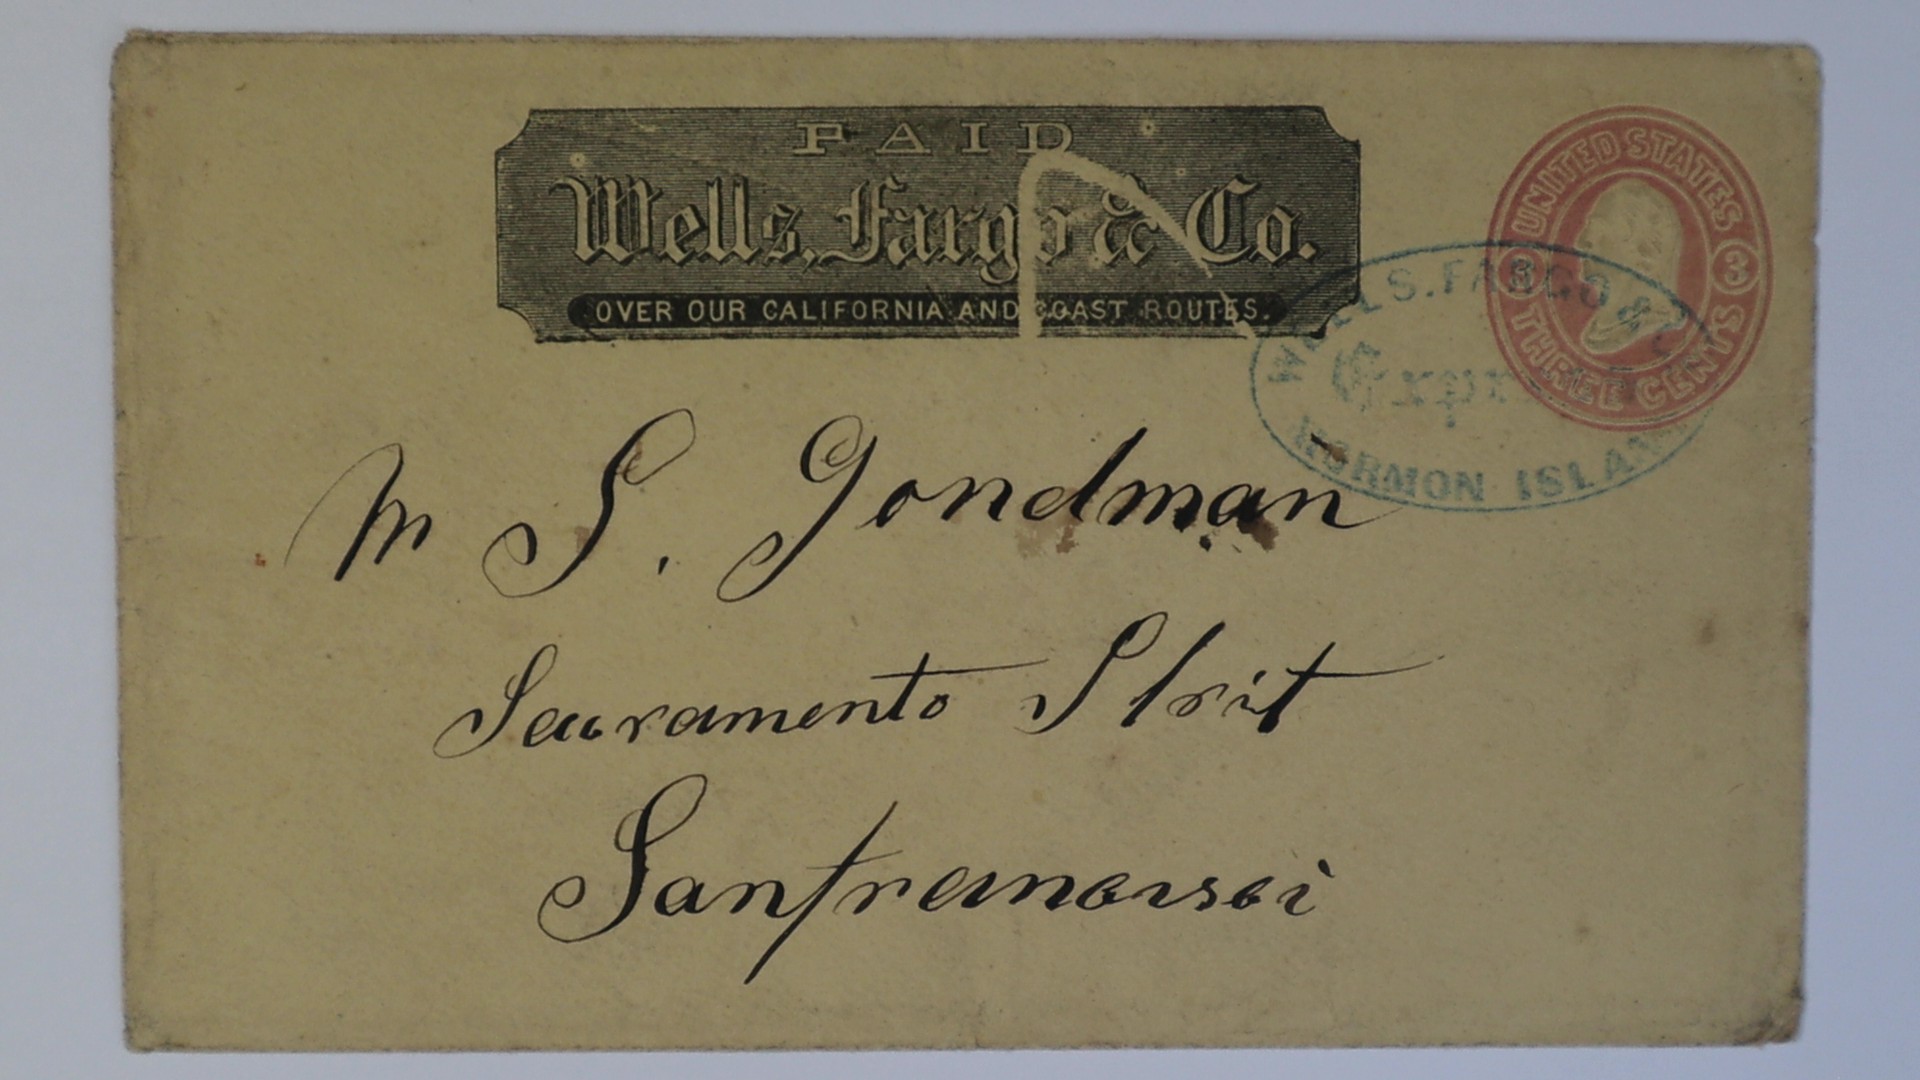 PAID
Wells, Fargo & Co.
OVER OUR CALIFORNIA AND COAST ROUTES.
UNITED STATES
3 3
THREE CENTS
WELLS. FARGO & C
Express
MORMON ISLAND
M S. Gondman
Sacramento Strit